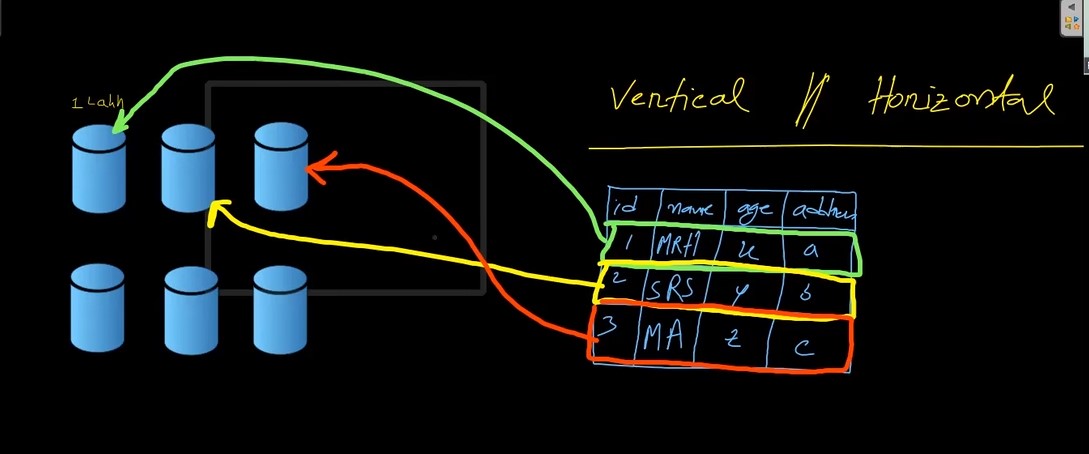 Vertical // Horizontal
1 Lakh
id name age address
1 MRH x a
2 SRS y b
3 MA z c